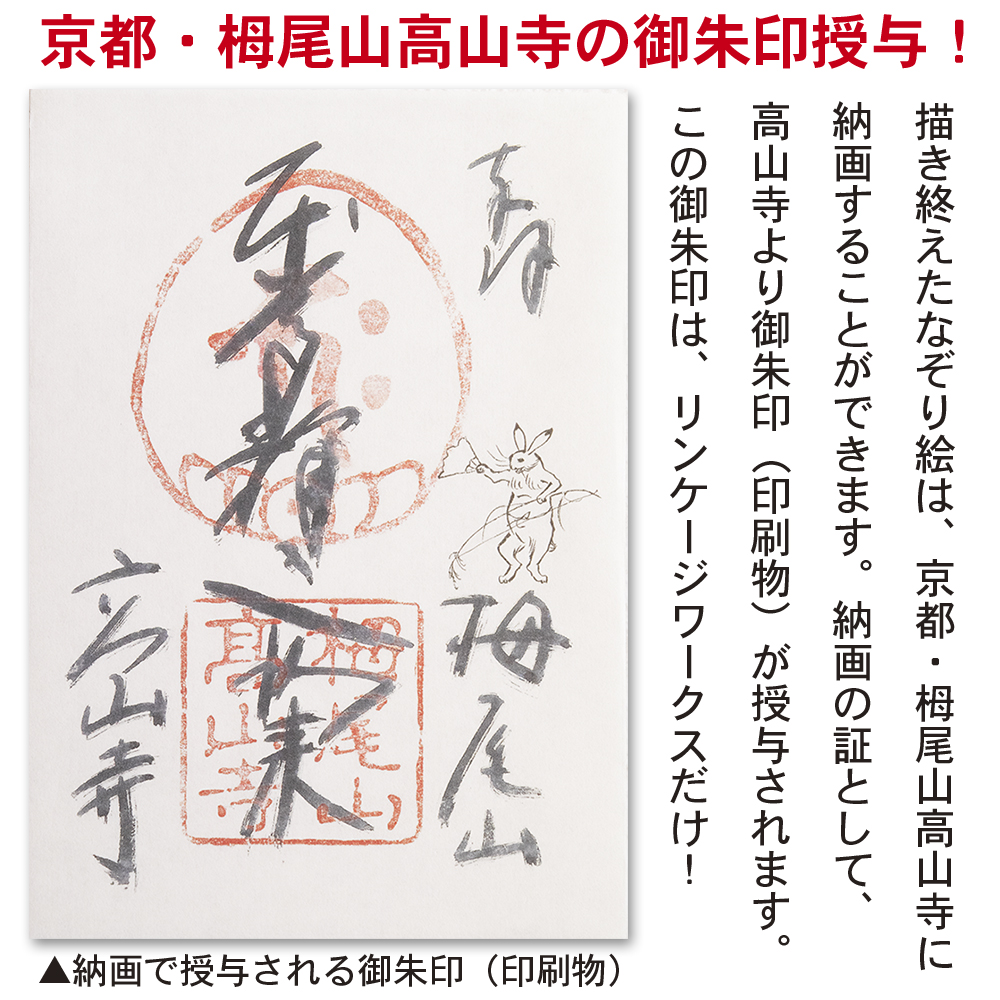 京都・栂尾山高山寺の御朱印授与！
描き終えたなぞり絵は、京都・栂尾山高山寺に
納画することができます。納画の証として、
高山寺より御朱印（印刷物）が授与されます。
この御朱印は、リンケージワークスだけ！
奉拝
栂尾山
高山寺
栂尾山
高山寺
▲納画で授与される御朱印（印刷物）